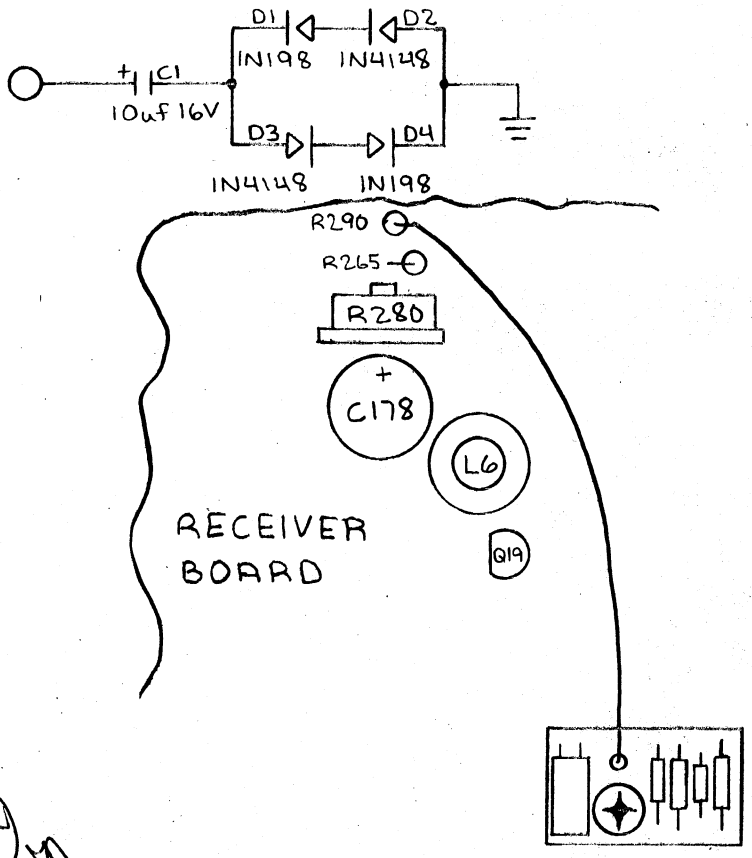 D1 D2
1N198 1N4148
+ C1
10uf 16V
D3 D4
1N4148 1N198
R290
R265
R280
+
C178
L6
RECEIVER
BOARD
Q19